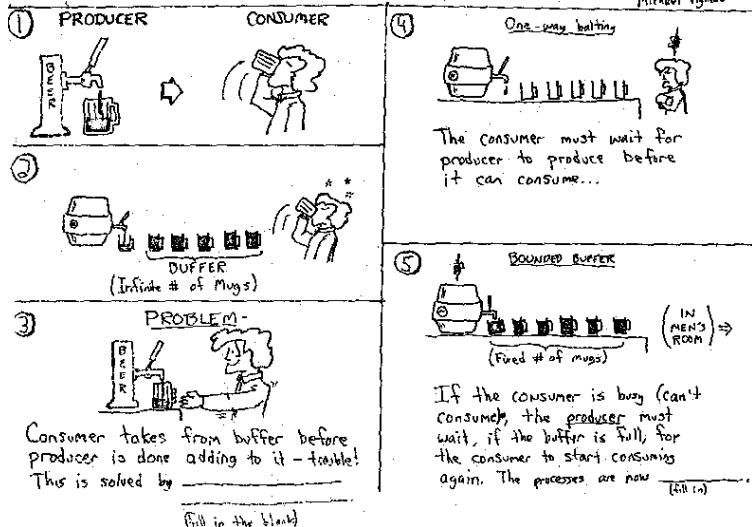 ①
PRODUCER
CONSUMER
BEER
②
BUFFER
(Infinite # of Mugs)
③
PROBLEM-
BEER
Consumer takes from buffer before
producer is done adding to it - trouble!
This is solved by
(fill in the blank)
④
One-way halting
The consumer must wait for
producer to produce before
it can consume...
⑤
BOUNDED BUFFER
(Fixed # of mugs)
(IN
MEN'S
ROOM) ⇒
If the consumer is busy (can't
consume), the producer must
wait, if the buffer is full, for
the consumer to start consuming
again. The processes are now
(fill in)